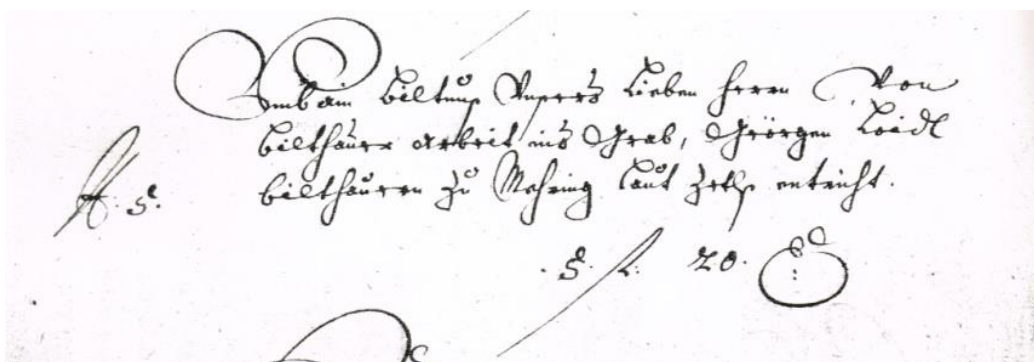 Umb ain Biltnus Unsers Lieben herrn Von
Bilthauer arbeit ins Grab, Geörgen Loidl
bilthauern zu Mehring laut Zetls entricht.
N. 5.
5 fl. 20